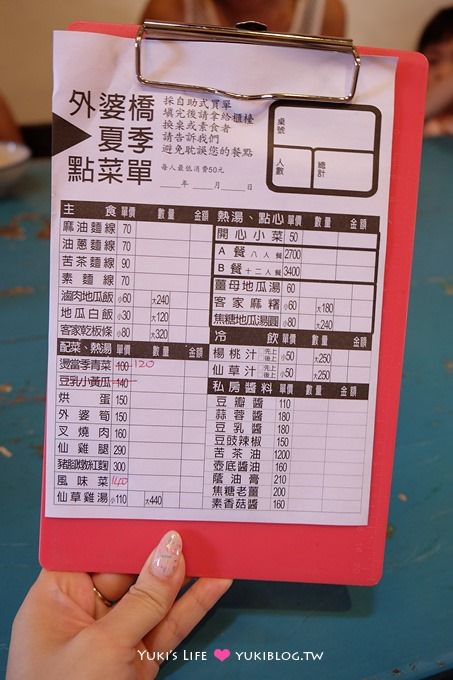 外婆橋
夏季
點菜單
採自助式買單
填完後請拿給櫃檯
換桌或素食者
請告訴我們
避免耽誤您的餐點
每人最低消費50元
年 月 日
桌號
人數
總計
主食 單價 數量 金額
麻油麵線 70
油蔥麵線 70
苦茶麵線 90
素麵線 70
滷肉地瓜飯 小60 大240
地瓜白飯 小30 大120
客家乾板條 小80 大320
配菜、熱湯 單價 數量 金額
燙當季青菜 100 120
豆乳小黃瓜 140
烘蛋 150
外婆筍 150
叉燒肉 160
仙雞腿 290
豬腳燉紅麴 300
風味菜 140
仙草雞湯 小110 大440
熱湯、點心 單價 數量 金額
開心小菜 50
A餐 八人餐 2700
B餐 十二人餐 3400
薑母地瓜湯 60
客家麻糬 小60 大180
焦糖地瓜湯圓 小80 大240
冷飲 單價 數量 金額
楊桃汁 先上 後上 小50 大250
仙草汁 先上 後上 小50 大250
私房醬料 單價 數量 金額
豆瓣醬 110
蒜蓉醬 180
豆乳醬 180
豆豉辣椒 150
苦茶油 1200
壺底醬油 160
蔭油膏 210
焦糖老薑 200
素香菇醬 160
Yuki's Life ♥ yukiblog.tw